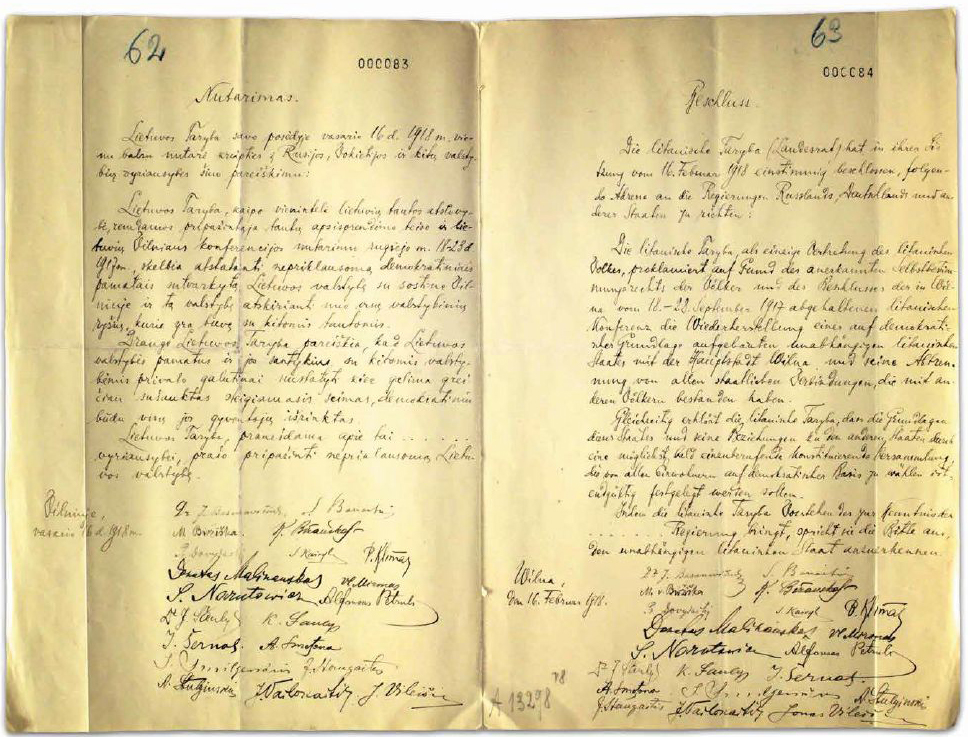 62
000083
Nutarimas.
Lietuvos Taryba savo posėdyje vasario 16 d. 1918 m. vie-
nu balsu nutarė kreiptis į Rusijos, Vokietijos ir kitų valsty-
bių vyriausybes šiuo pareiškimu:
Lietuvos Taryba, kaipo vienintelė lietuvių tautos atstovy-
bė, remdamos pripažintąja tautų apsisprendimo teise ir lie-
tuvių Vilniaus konferencijos nutarimu rugsėjo m. 18-23 d.
1917 m., skelbia atstatanti nepriklausomą demokratiniais
pamatais sutvarkytą Lietuvos valstybę su sostine Vil-
niuje ir tą valstybę atskirianti nuo visų valstybinių
ryšių, kurie yra buvę su kitomis tautomis.
Drauge Lietuvos Taryba pareiškia, kad Lietuvos
valstybės pamatus ir jos santykius su kitomis valsty-
bėmis privalo galutinai nustatyti kiek galima grei-
čiau sušauktas steigiamasis seimas, demokratiniu
būdu visų jos gyventojų išrinktas.
Lietuvos Taryba, pranešdama apie tai ......
vyriausybei, prašo pripažinti nepriklausomą Lietu-
vos valstybę.
Vilniuje,
vasario 16 d. 1918 m.
Dr J. Basanavičius, S. Banaitis
M. Biržiška. K. Bizauskas
P. Dovydaitis S. Kairys P. Klimas
Donatas Malinauskas Vl. Mironas
S. Narutowicz Alfonas Petrulis
Dr J. Šaulys K. Šaulys
J. Šernas. A. Smetona
J. Staugaitis
A. Stulginskis J. Vailokaitis J. Vileišis
63
000084
Beschluss.
Die litauische Taryba (Landesrat) hat in ihrer Sit-
zung vom 16. Februar 1918 einstimmig beschlossen, folgen-
de Adresse an die Regierungen Russlands, Deutschlands und an-
derer Staaten zu richten:
Die litauische Taryba, als einzige Vertretung des litauischen
Volkes, proklamiert auf Grund des anerkannten Selbstbestim-
mungsrechts der Völker und des Beschlusses der in Wil-
na vom 18.-23. September 1917 abgehaltenen litauischen
Konferenz die Wiederherstellung eines auf demokrati-
scher Grundlage aufgebauten unabhängigen litauischen
Staates mit der Hauptstadt Wilna und seine Abtren-
nung von allen staatlichen Verbindungen, die mit an-
deren Völkern bestanden haben.
Gleichzeitig erklärt die litauische Taryba, dass die Grundlagen
dieses Staates und seine Beziehungen zu den anderen Staaten durch
eine möglichst bald einzuberufende konstituierende Versammlung,
die von allen Einwohnern auf demokratischer Basis zu wählen ist,
endgültig festgelegt werden sollen.
Indem die litauische Taryba Vorstehendes zur Kenntnis der
........ Regierung bringt, spricht sie die Bitte aus,
den unabhängigen litauischen Staat anzuerkennen.
Wilna,
den 16. Februar 1918.
Dr J. Basanavičius S. Banaitis
M. v. Biržiška K. Bizauskas
P. Dovydaitis S. Kairys P. Klimas
Donatas Malinauskas Vl. Mironas
S. Narutowicz Alfonas Petrulis
Dr J. Šaulys K. Šaulys J. Šernas.
A. Smetona A. Stulginskis
J. Staugaitis J. Vailokaitis Jonas Vileišis
A 13298